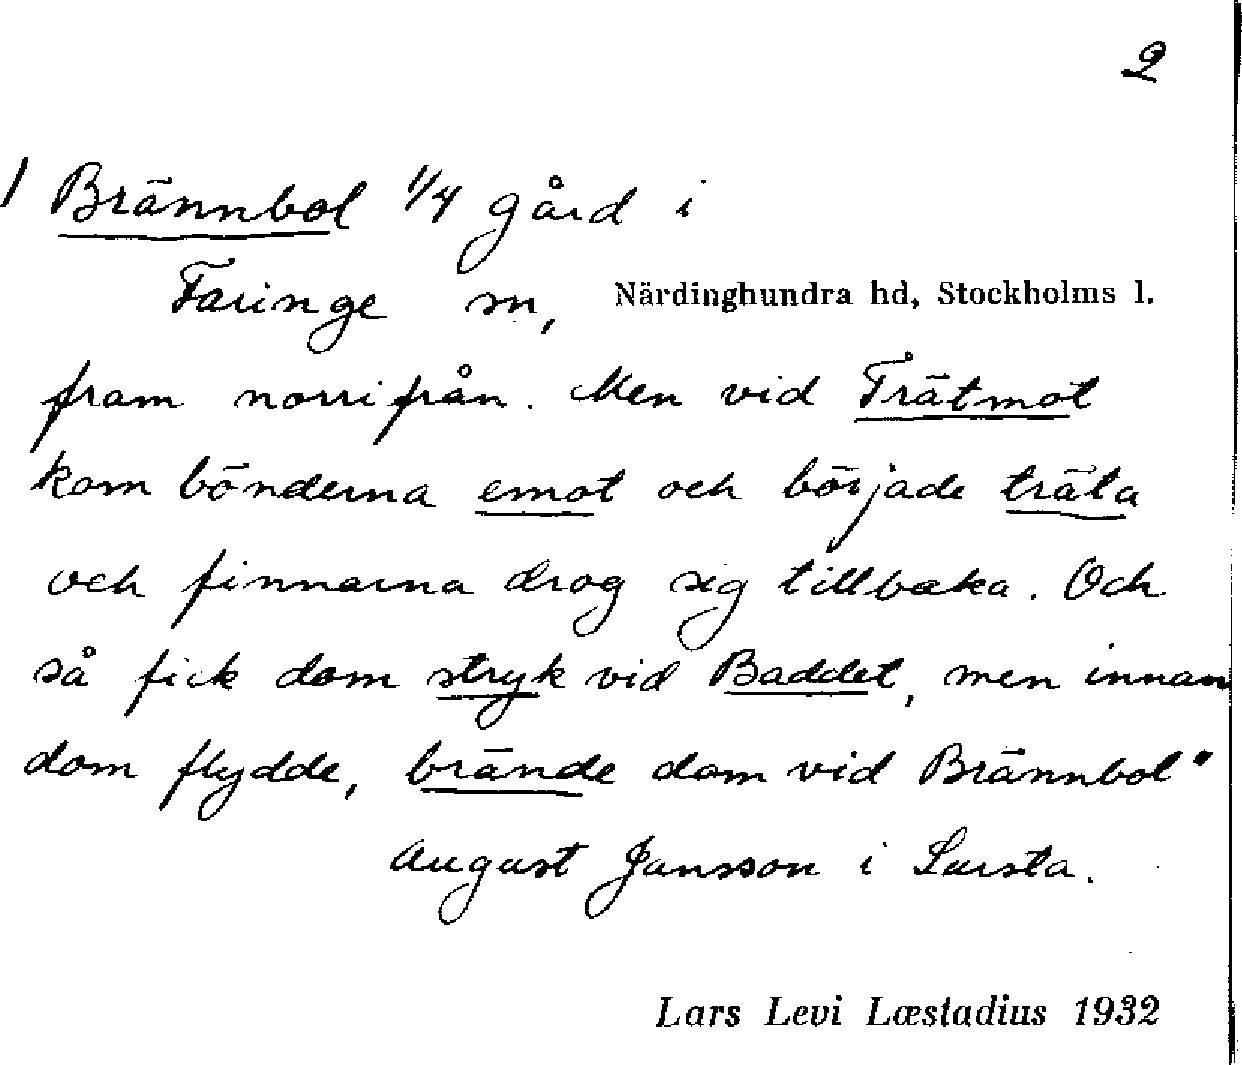 2
/ Brännbol 1/4 gård i
Faringe sn, Närdinghundra hd, Stockholms l.
fram norrifrån. Men vid Trätmot
kom bönderna emot och började träta
och finnarna drog sig tillbaka. Och
så fick dom stryk vid Baddet, men innan
dom flydde, brände dom vid Brännbol"
August Jansson i Lursta.
Lars Levi Læstadius 1932